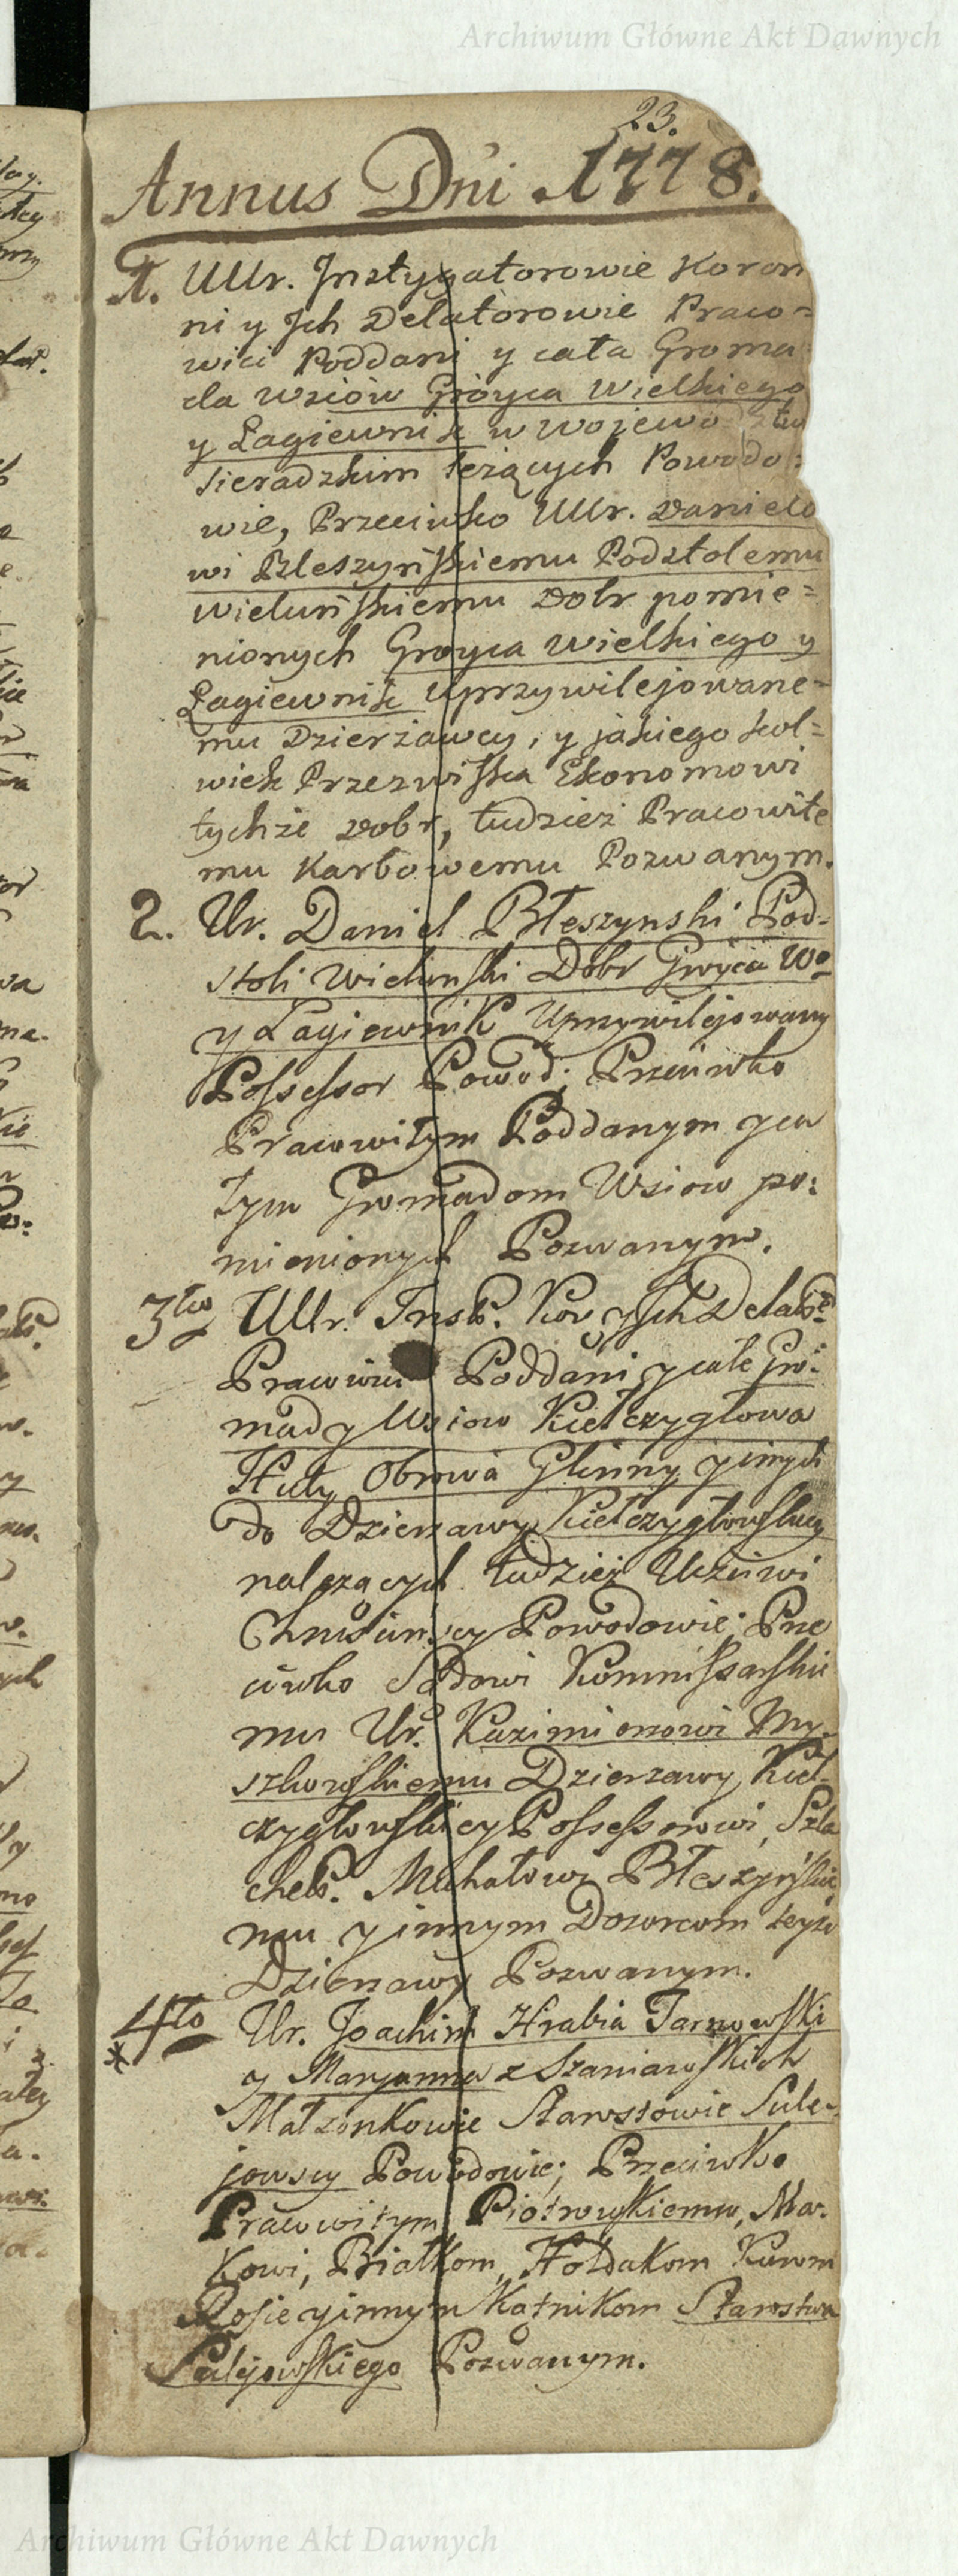 Archiwum Główne Akt Dawnych
23.
Annus Dni 1778.
1. UUr. Instygatorowie Koron
ni y Ich Delatorowie Praco=
wici Poddani y cała Groma
da Wsiów Gróyca Wielkiego
y Łagiewnik w Wojewodztw
Sieradzkim leżących Powodo:
wie, Przeciwko UUr. Danielo
wi Bleszyńskiemu Podstolemu
Wieluńskiemu Dobr pomie=
nionych Groyca Wielkiego y
Łagiewnik Uprzywilejowane=
mu Dzierżawcy, y jakiego kol=
wiek Przezwiska Ekonomowi
tychże Dobr, tudzież Pracowite
mu Karbowemu Pozwanym.
2. Ur. Daniel Błeszynski Pod-
stoli Wieluński Dobr Groyca Wo
y Łagiewnik Uprzywilejowany
Possessor Powod; Przeciwko
Pracowitym Poddanym y ca
łym Gromadom Wsiow po:
mienionych Pozwanym.
3tio UUr. Inst. Kor y Ich Delat.
Pracowici Poddani y całe Gro:
mady Wsiow Kiełczygłowa
Huty Obrowa Glinny y innych
do Dzierzawy Kiełczygłowskiey
należących tudzież Uczciwi
Powodowie; Prze
ciwko Sądowi Kommissarskie
mu Ur. Kazimierzowi My-
szkowskiemu Dzierzawy Kieł-
czygłowskiey Possessorowi, Szla
chet. Michałowi Błeszyńskie
mu y innym Dozorcom teyże
Dzierzawy Pozwanym.
4to Ur. Joachim Hrabia Tarnowski
* y Maryanna z Szaniawskich
Małżonkowie Starostowie Sule-
jowscy Powodowie; Przeciwko
Pracowitym Piotrowskiemu, Ma-
kowi, Białkom, Hołdakom
Rosie y innym Kątnikom Starostwa
Sulejowskiego Pozwanym.
Archiwum Główne Akt Dawnych